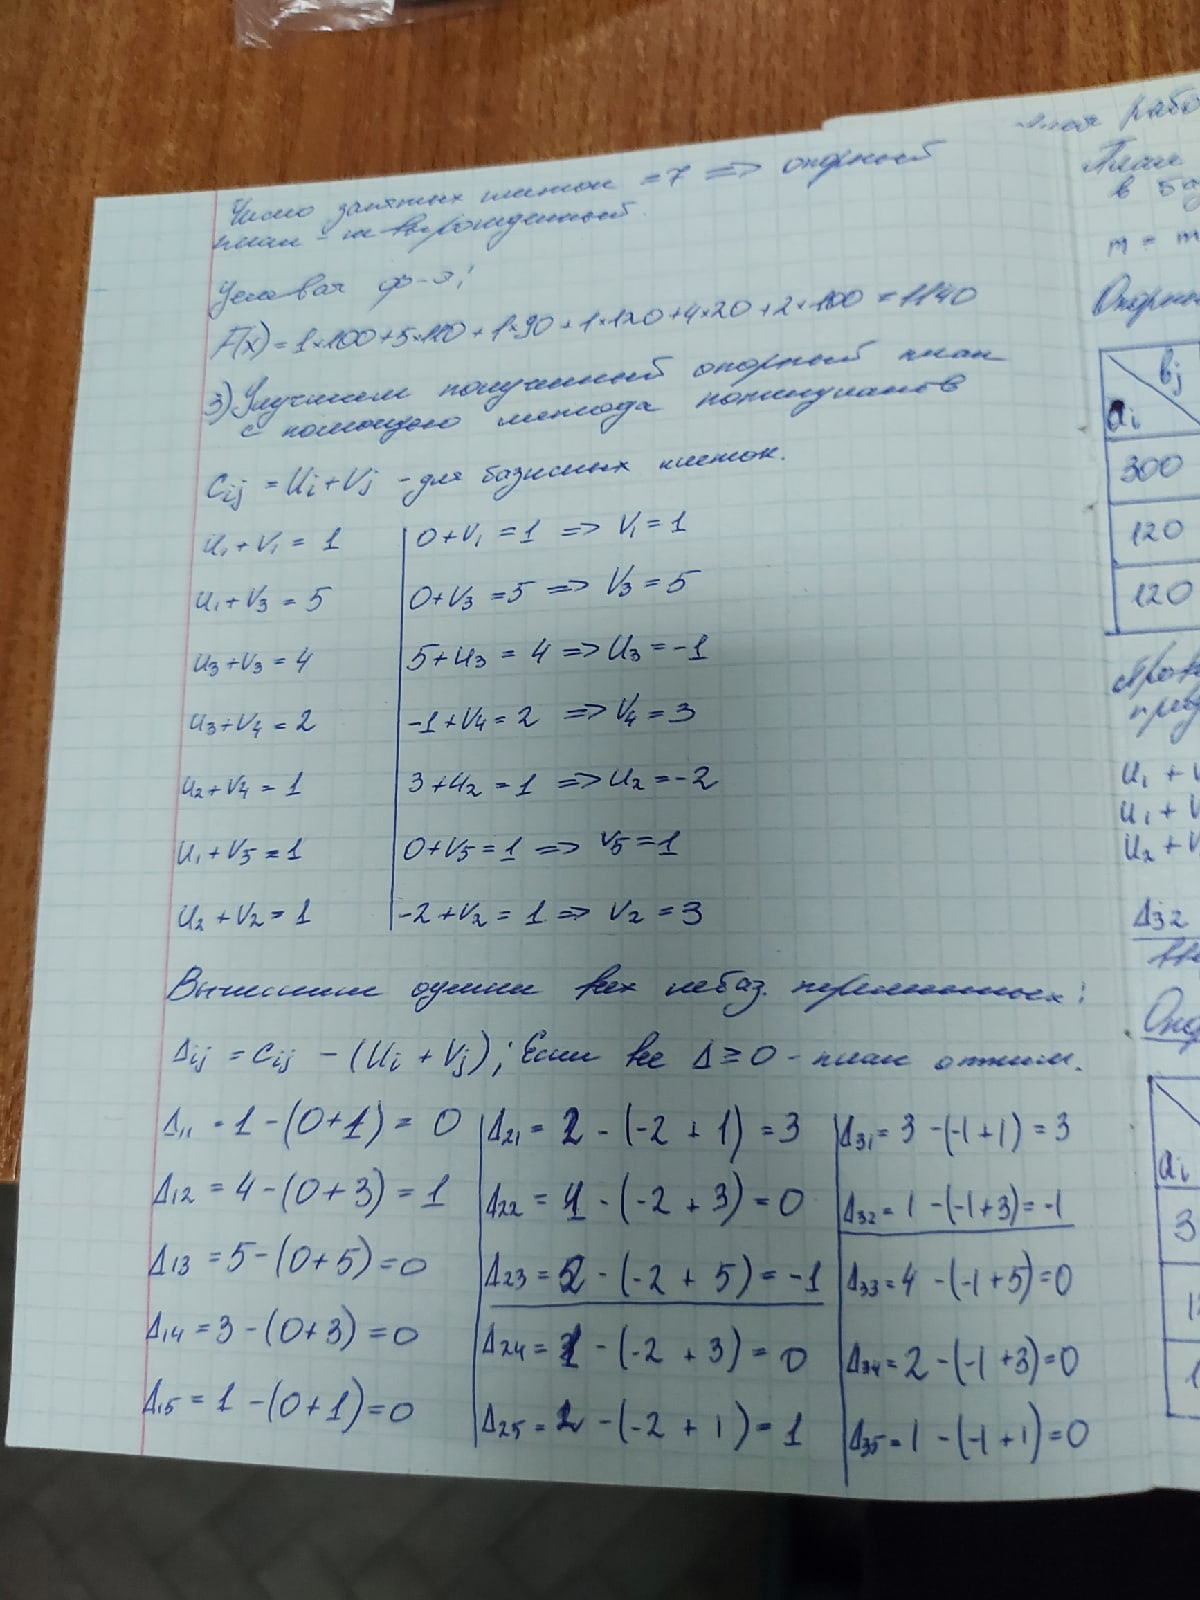 Число занятых клеток = 7 => опорный
план - не вырожденный.
Целевая ф-я:
F(x) = 1×100+5×110+1×90+1×120+4×20+2×100 = 1140
3) Улучшим полученный опорный план
с помощью метода потенциалов
Cij = Ui + Vj - для базисных клеток.
U1 + V1 = 1 0+V1 = 1 => V1 = 1
U1 + V3 = 5 0+V3 = 5 => V3 = 5
U3 + V3 = 4 5+U3 = 4 => U3 = -1
U3 + V4 = 2 -1+V4 = 2 => V4 = 3
U2 + V4 = 1 3+U2 = 1 => U2 = -2
U1 + V5 = 1 0+V5 = 1 => V5 = 1
U2 + V2 = 1 -2+V2 = 1 => V2 = 3
Вычислим оценки всех небаз. переменных:
Δij = Cij - (Ui + Vj); Если все Δ ≥ 0 - план оптим.
Δ11 = 1 - (0+1) = 0 Δ21 = 2 - (-2 + 1) = 3 Δ31 = 3 - (-1+1) = 3
Δ12 = 4 - (0+3) = 1 Δ22 = 1 - (-2 + 3) = 0 Δ32 = 1 - (-1+3) = -1
Δ13 = 5 - (0+5) = 0 Δ23 = 2 - (-2 + 5) = -1 Δ33 = 4 - (-1+5) = 0
Δ14 = 3 - (0+3) = 0 Δ24 = 1 - (-2 + 3) = 0 Δ34 = 2 - (-1+3) = 0
Δ15 = 1 - (0+1) = 0 Δ25 = 2 - (-2 + 1) = 1 Δ35 = 1 - (-1+1) = 0
План
в 5
m = m
bj
ai
300
120
120
U1 + V
U1 + V
U2 + V
Δ32
ai
3
1
1